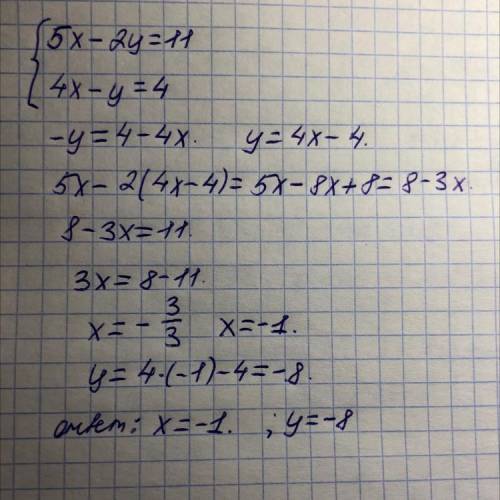 5x-2y=11
4x-y=4
-y=4-4x. y=4x-4.
5x-2(4x-4)=5x-8x+8=8-3x.
8-3x=11.
3x=8-11.
x=-3/3 x=-1.
y=4·(-1)-4=-8.
ответ: x=-1. ; y=-8